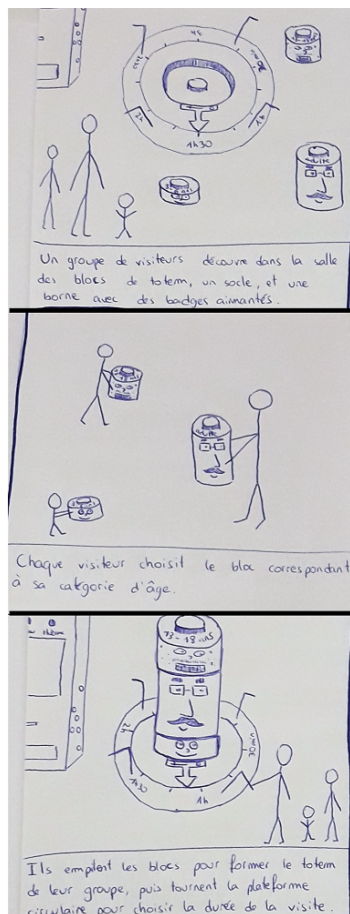 1h30
2h
1h
Un groupe de visiteurs découvre dans la salle
des blocs de totem, un socle, et une
borne avec des badges aimantés.
Chaque visiteur choisit le bloc correspondant
à sa catégorie d'âge.
13-18 ans
2h
1h30
1h
Ils empilent les blocs pour former le totem
de leur groupe, puis tournent la plateforme
circulaire pour choisir la durée de la visite.